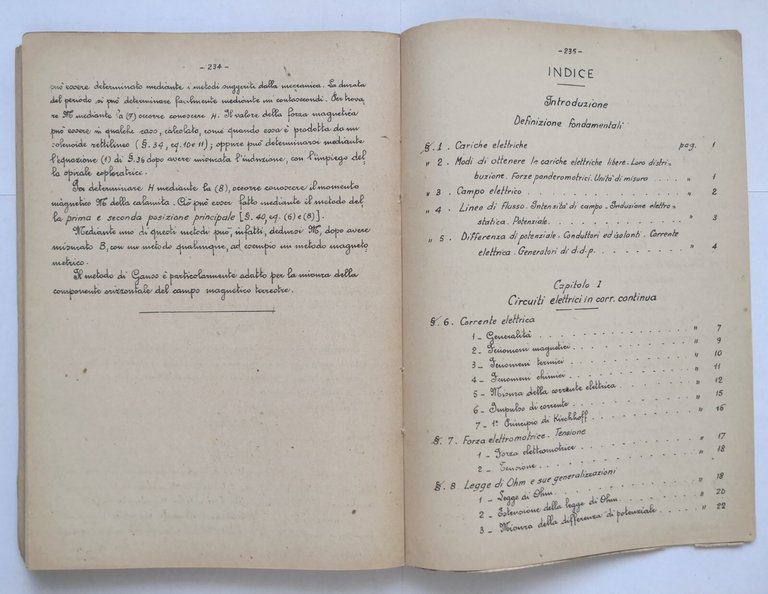 - 234 -
può essere determinato mediante i metodi suggeriti dalla meccanica. La durata
del periodo si può determinare facilmente mediante un contasecondi. Per trova_
re M mediante la (7) occorre conoscere H. Il valore della forza magnetica
può essere in qualche caso, calcolato, come quando essa è prodotta da un
solenoide rettilineo (§.34, eq. 10 e 11); oppure può determinarsi mediante
l'equazione (1) di §.36 dopo avere misurata l'induzione, con l'impiego del_
la spirale esploratrice.
Per determinare H mediante la (8), occorre conoscere il momento
magnetico M della calamita. Ciò può essere fatto mediante il metodo del_
la prima e seconda posizione principale [§.40, eq. (6) e (8)].
Mediante uno di questi metodi può, infatti, dedursi M, dopo avere
misurato B, con un metodo qualunque, ad esempio un metodo magneto_
metrico.
Il metodo di Gauss è particolarmente adatto per la misura della
componente orizzontale del campo magnetico terrestre.
- 235 -
INDICE
Introduzione
Definizione fondamentali
§. 1. Cariche elettriche pag. 1
" 2. Modi di ottenere le cariche elettriche libere. Loro distri_
buzione. Forze ponderomotrici. Unità di misura . . . . " 1
" 3. Campo elettrico . . . . . . . . . . " 2
" 4. Linee di flusso. Intensità di campo. Induzione elettro_
statica. Potenziale . . . . . . . . . . " 3
" 5. Differenza di potenziale. Conduttori ed isolanti. Corrente
elettrica. Generatori di d.d.p. . . . . . . . " 4
Capitolo I
Circuiti elettrici in corr. continua
§. 6. Corrente elettrica
1_ Generalità . . . . . . . . . . " 7
2_ Fenomeni magnetici . . . . . . . . " 9
3_ Fenomeni termici . . . . . . . . " 10
4_ Fenomeni chimici . . . . . . . . " 11
5_ Misura della corrente elettrica . . . . . . " 12
6_ Impulso di corrente . . . . . . . . " 15
7_ 1° Principio di Kirchhoff . . . . . . . " 16
§. 7. Forza elettromotrice. Tensione
1_ Forza elettromotrice . . . . . . . . " 17
2_ Tensione . . . . . . . . . . " 18
§. 8. Legge di Ohm e sue generalizzazioni
1_ Legge di Ohm . . . . . . . . . " 18
2_ Estensione della legge di Ohm . . . . . . " 20
3_ Misura della differenza di potenziale . . . . " 22